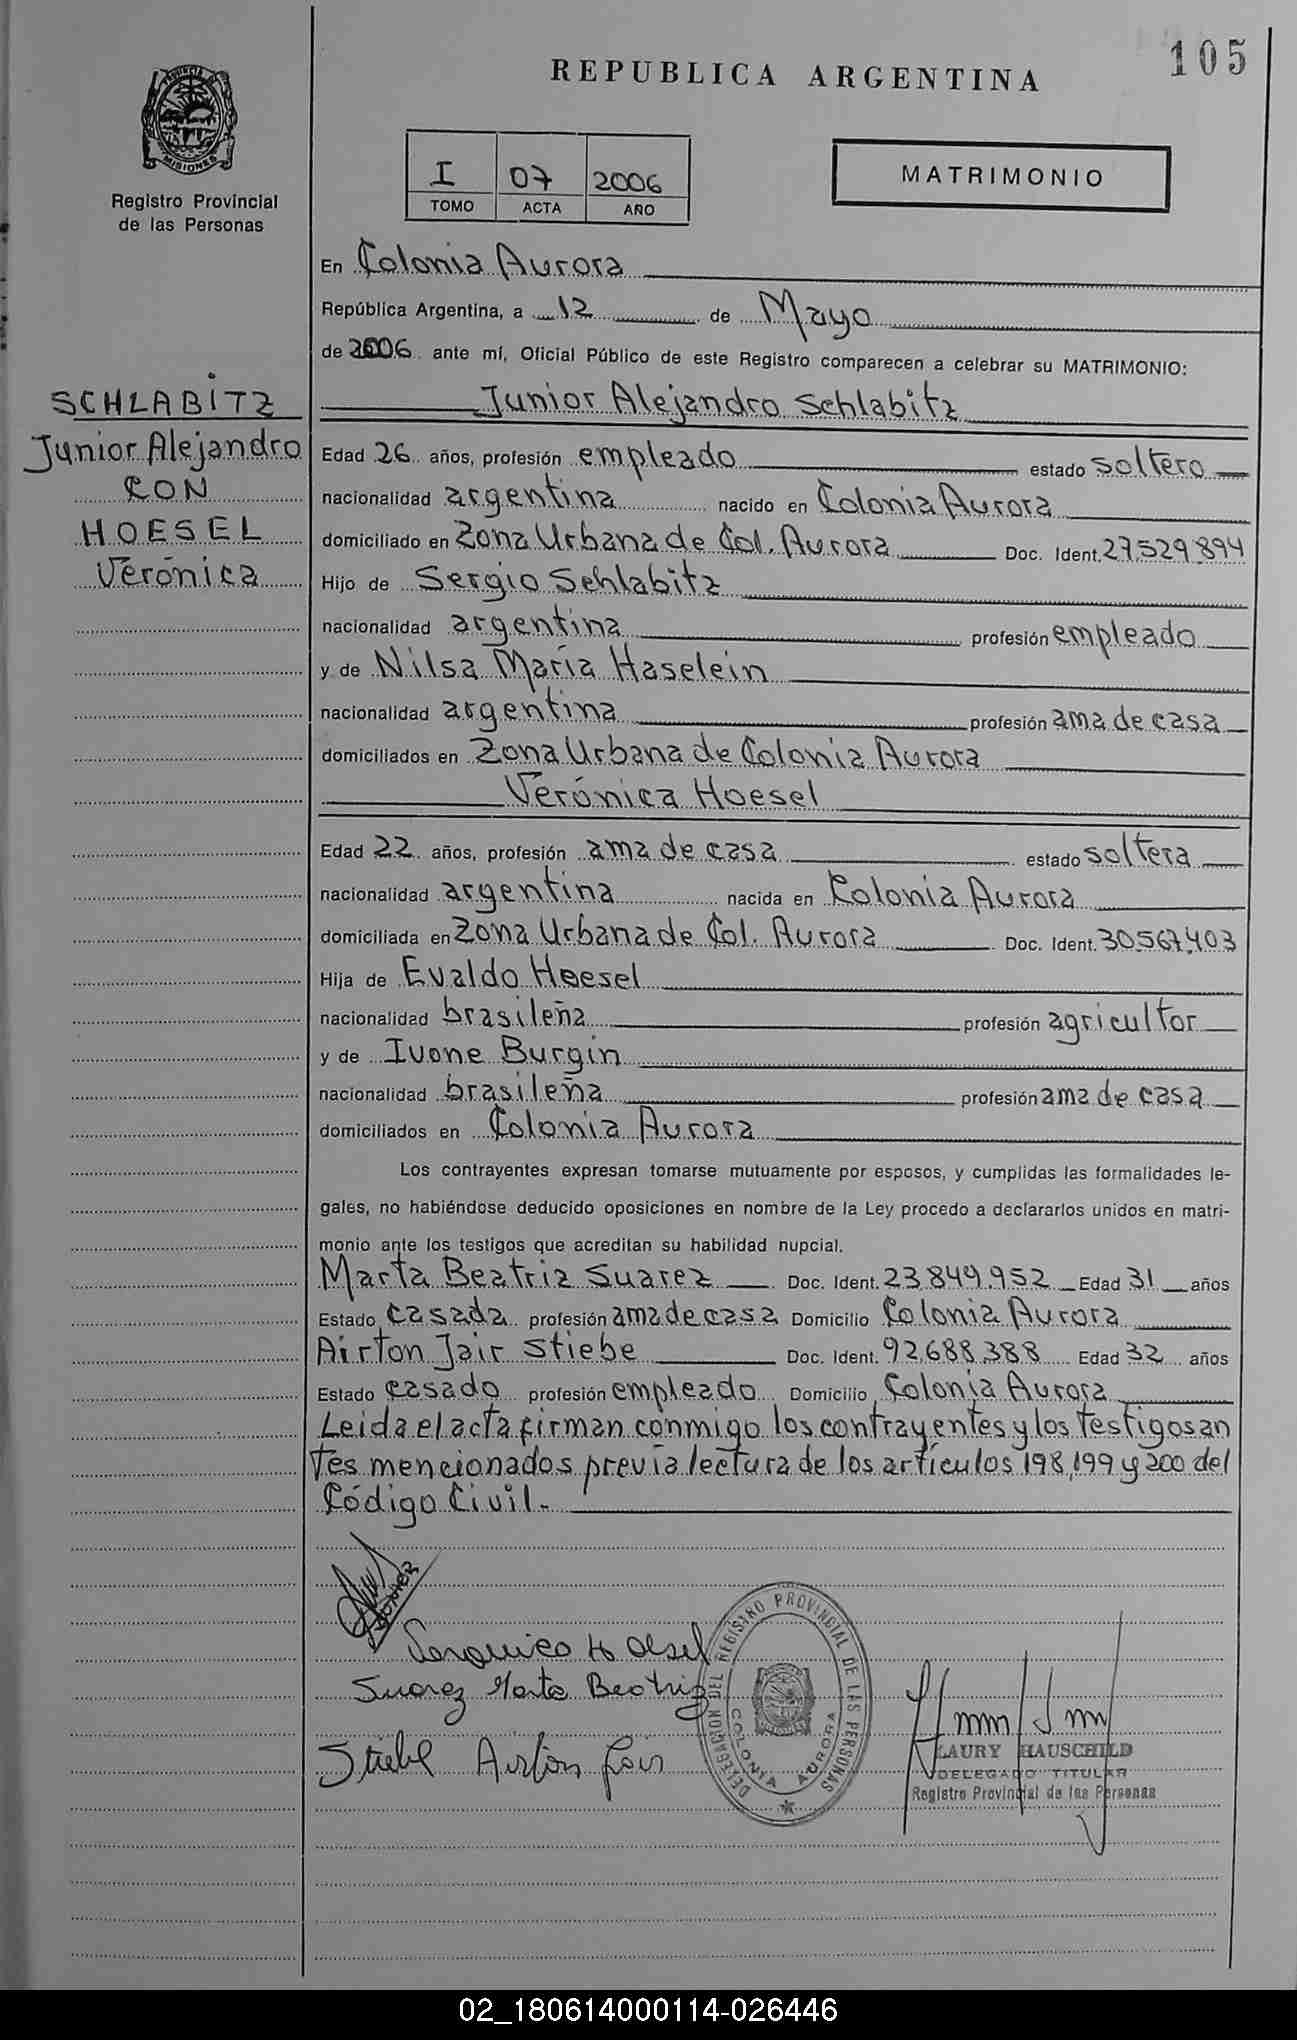 105
REPUBLICA ARGENTINA
PROVINCIA DE MISIONES
Registro Provincial
de las Personas
I 07 2006
TOMO ACTA AÑO
MATRIMONIO
En Colonia Aurora
República Argentina, a 12 de Mayo
de 2006 ante mí, Oficial Público de este Registro comparecen a celebrar su MATRIMONIO:
SCHLABITZ
Junior Alejandro
CON
HOESEL
Verónica
Junior Alejandro Schlabitz
Edad 26 años, profesión empleado estado soltero
nacionalidad argentina nacido en Colonia Aurora
domiciliado en Zona Urbana de Col. Aurora Doc. Ident. 27.529.894
Hijo de Sergio Schlabitz
nacionalidad argentina profesión empleado
y de Nilsa María Haselein
nacionalidad argentina profesión ama de casa
domiciliados en Zona Urbana de Colonia Aurora
Verónica Hoesel
Edad 22 años, profesión ama de casa estado soltera
nacionalidad argentina nacida en Colonia Aurora
domiciliada en Zona Urbana de Col. Aurora Doc. Ident. 30.567.403
Hija de Evaldo Hoesel
nacionalidad brasileña profesión agricultor
y de Ivone Burgin
nacionalidad brasileña profesión ama de casa
domiciliados en Colonia Aurora
Los contrayentes expresan tomarse mutuamente por esposos, y cumplidas las formalidades le-
gales, no habiéndose deducido oposiciones en nombre de la Ley procedo a declararlos unidos en matri-
monio ante los testigos que acreditan su habilidad nupcial.
Marta Beatriz Suarez Doc. Ident. 23.849.952 Edad 31 años
Estado casada profesión ama de casa Domicilio Colonia Aurora
Airton Jair Stiebe Doc. Ident. 92.688.388 Edad 32 años
Estado casado profesión empleado Domicilio Colonia Aurora
Leida el acta firman conmigo los contrayentes y los testigos an
tes mencionados previa lectura de los artículos 198, 199 y 200 del
Código Civil.-
Hoesel
Suarez Marta Beatriz
Stiebe Airton Jair
DELEGACION DEL REGISTRO PROVINCIAL DE LAS PERSONAS
COLONIA AURORA
LAURY HAUSCHILD
DELEGADO TITULAR
Registro Provincial de las Personas
02_180614000114-026446